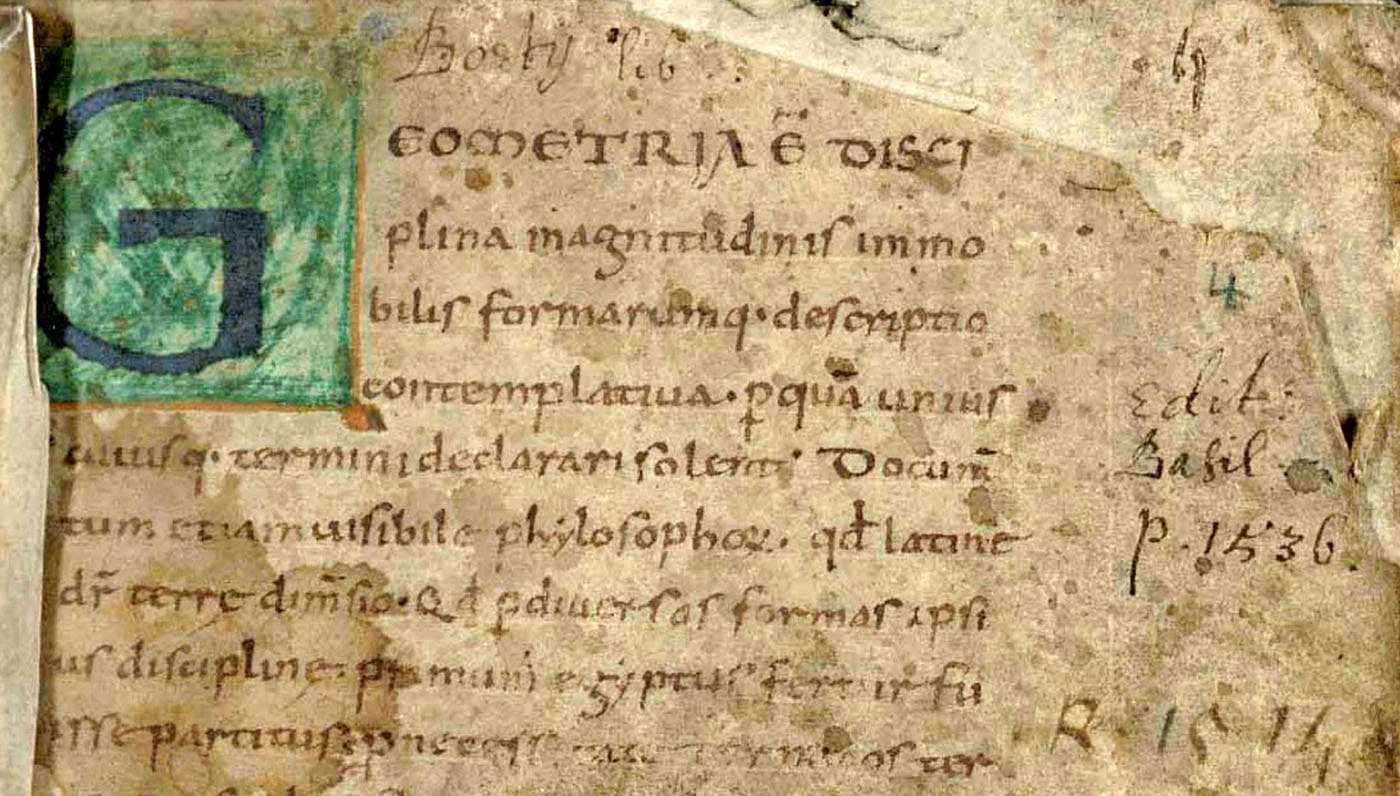 Boetij lib
GEOMETRIA Ē DISCI
plina magnitudinis immo
bilis formarumq· descriptio
contemplatiua· ꝑ quā unius
cuiusq· termini declarari solent· Docum̄
tum etiam uisibile phylosophoꝝ· qd̄ latine
dr̄ terre dim̄sio· Qd̄ ꝑ diuersas formas ipsi
us discipline· primum egyptus fertur fu
isse partitus· ter
4
Edit:
Basil
P. 1536.
R. 15 14